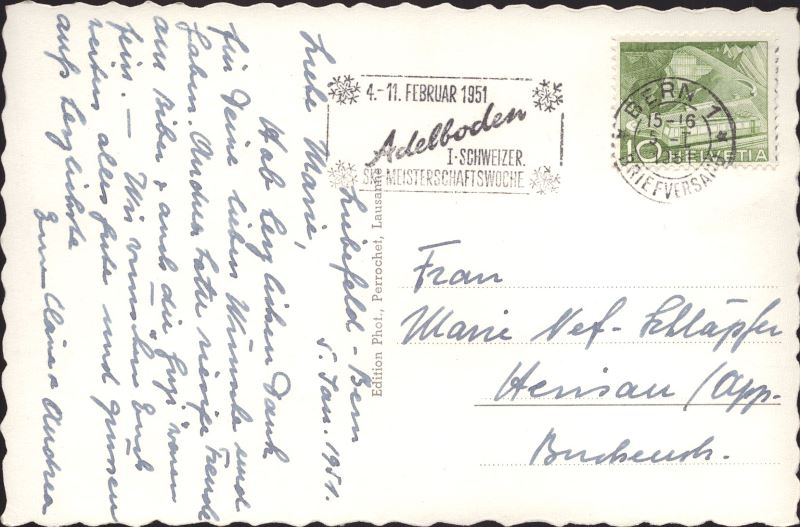 Liebefeld - Bern
5. Jan. 1951.
Liebe Marie,
Hab herzlichen Dank
für Deine lieben Wünsche und
Gaben. Andrea hatte riesige Freude
am Biber & auch die "Guzi" waren
fein. — Wir wünschen Euch
weiter alles gute und grüssen
aufs herzlichste
Eure Claire & Andrea
Edition Phot., Perrochet, Lausanne
4.-11. FEBRUAR 1951
Adelboden
I. SCHWEIZER.
SKI MEISTERSCHAFTSWOCHE
BERN 1
15-16
BRIEFVERSAND
10 HELVETIA
Frau
Marie Nef-Schläpfer
Herisau / App.
Buchensch.